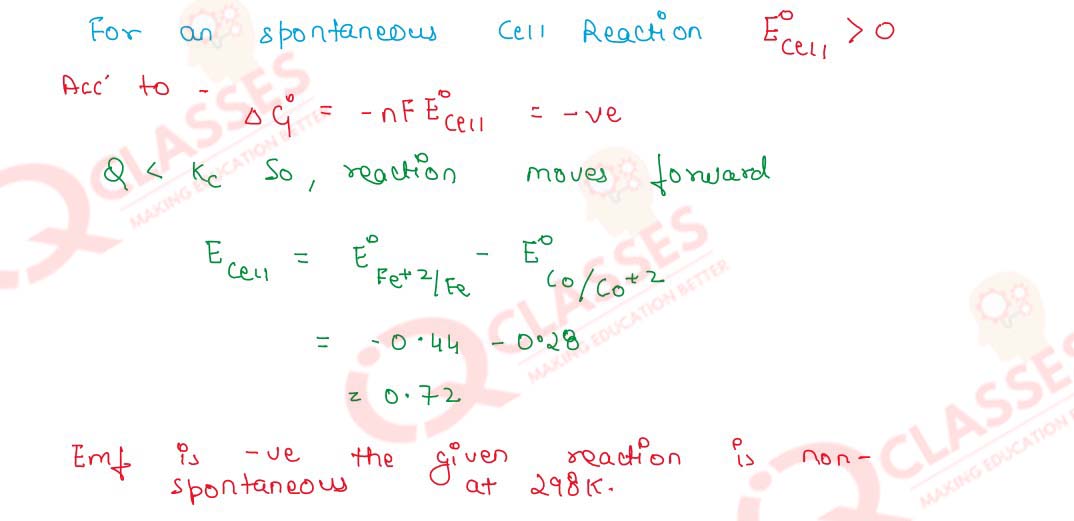 For an spontaneous Cell Reaction E°Cell > 0
Acc' to -
ΔG° = -nFE°Cell = -ve
Q < Kc So, reaction moves forward
ECell = E°Fe+2/Fe - E°Co/Co+2
= -0.44 - 0.28
= 0.72
Emf is -ve the given reaction is non-
spontaneous at 298K.
CLASSES
MAKING EDUCATION BETTER
CLASSES
MAKING EDUCATION BETTER
CLASSES
MAKING EDUCATION